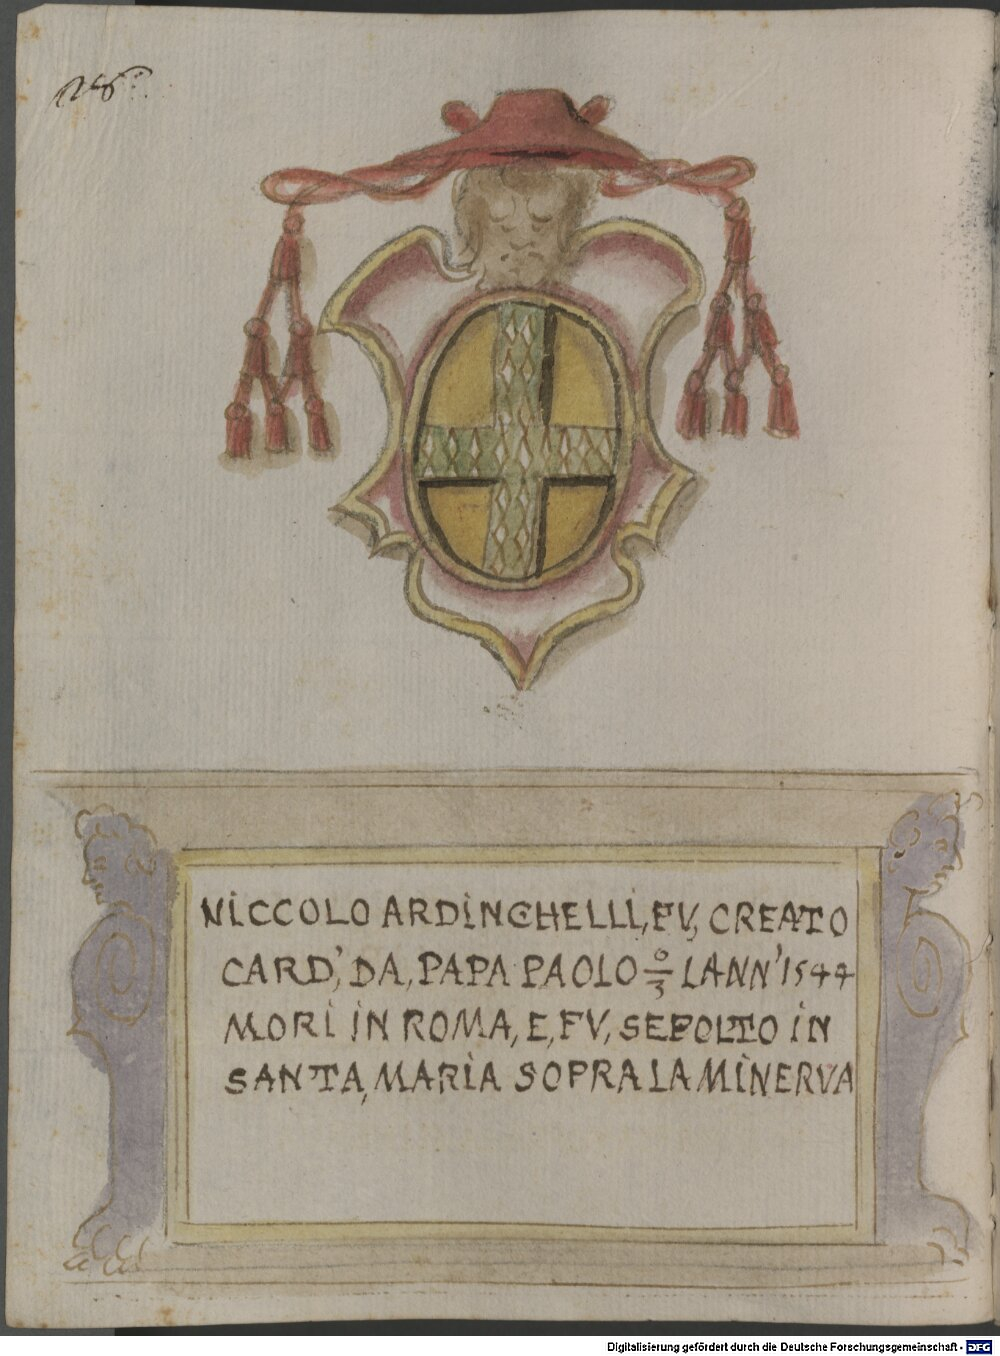 NICCOLO ARDINGHELLI, FV, CREATO
CARD', DA, PAPA PAOLO º/3 LANN' 1544
MORI IN ROMA, E, FV, SEPOLTO IN
SANTA, MARIA SOPRA LA MINERVA
Digitalisierung gefördert durch die Deutsche Forschungsgemeinschaft - DFG